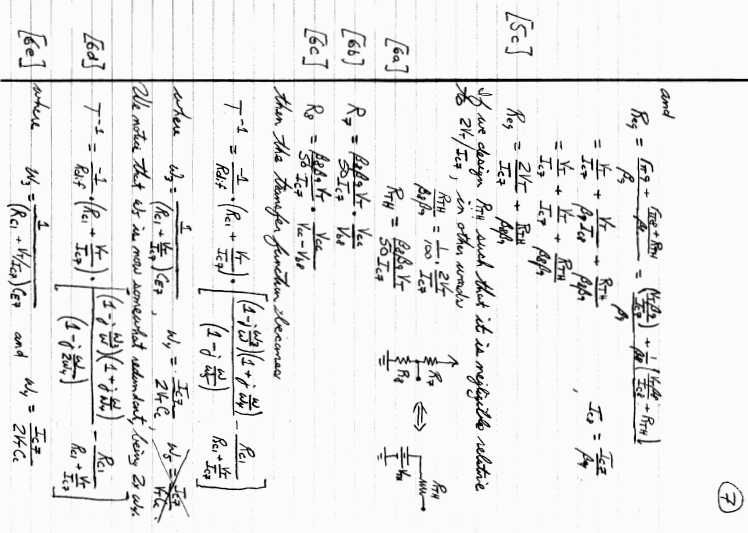 7
and
Req = (rπ9 + (rπ8 + RTH)/β8)/β9 = (VTβ9/Ic7) + 1/β8 (VTβ8/Ic8 + RTH) / β9
= VT/Ic7 + VT/(β9 Ic8) + RTH/(β8β9) , Ic8 = Ic7/β9
= VT/Ic7 + VT/Ic7 + RTH/(β8β9)
[5c] Req = 2VT/Ic7 + RTH/(β8β9)
If we design RTH such that it is negligible relative
to 2VT/Ic7, in other words
RTH/(β8β9) = 1/100 · 2VT/Ic7
[6a] RTH = β8β9VT/(50 Ic7)
R7 R8 ⇔ RTH
[6b] R7 = β8β9VT/(50 Ic7) · Vcc/Vb8
[6c] R8 = β8β9VT/(50 Ic7) · Vcc/(Vcc - Vb8)
then the transfer function becomes
T⁻¹ = -1/Rdif · (Rc1 + VT/Ic7) · [ (1 - j ω3/ω)(1 + j ω/ω4) / (1 - j ω/ω5) - Rc1/(Rc1 + VT/Ic7) ]
where ω3 = 1/((Rc1 + VT/Ic7)CE7) , ω4 = Ic7/(2VTCc) , ω5 = Ic7/(VTCc)
We notice that ω5 is now somewhat redundant, being 2x ω4.
[6d] T⁻¹ = -1/Rdif · (Rc1 + VT/Ic7) · [ (1 - j ω3/ω)(1 + j ω/ω4) / (1 - j ω/2ω4) - Rc1/(Rc1 + VT/Ic7) ]
[6e] where ω3 = 1/((Rc1 + VT/Ic7)CE7) and ω4 = Ic7/(2VTCc)